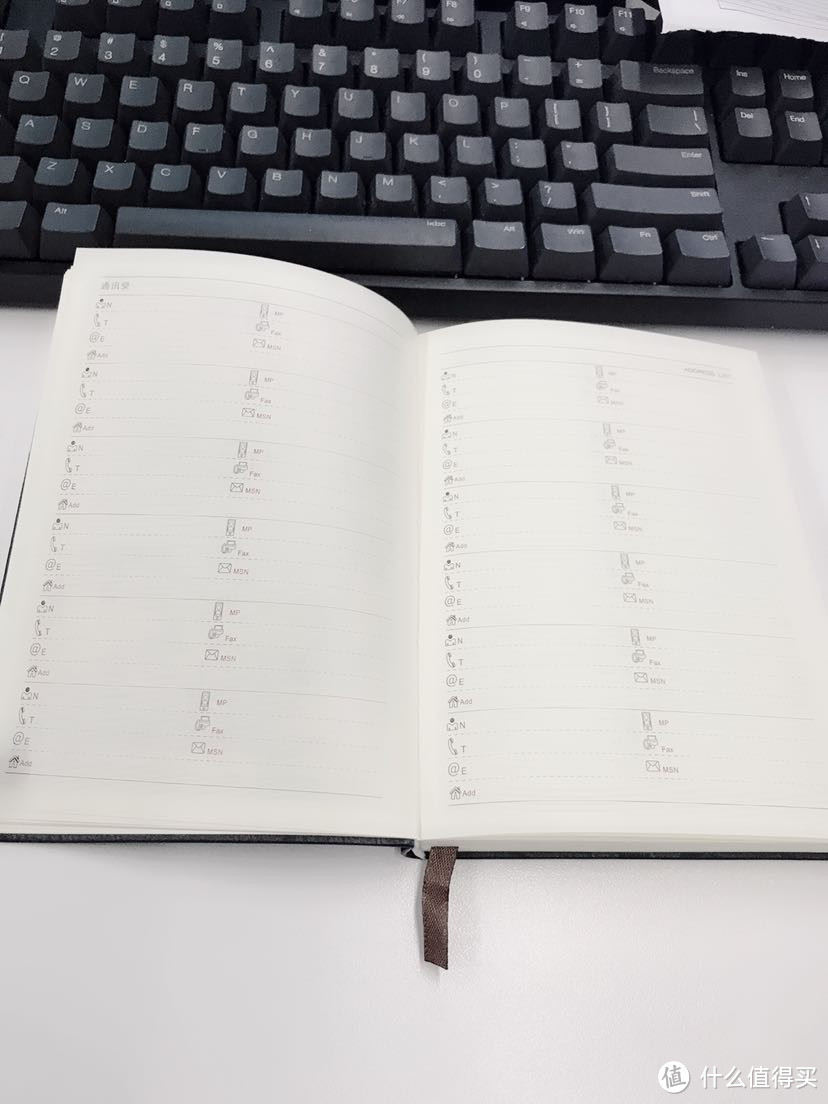 F6 F7 F8 F9 F10 F11
@ # $ % ^ & * ( ) _ +
1 2 3 4 5 6 7 8 9 0 - = Backspace Ins Home
Q W E R T Y U I O P { [ } ] | \ Del End
A S D F G H J K L : ; " ' Enter
Z X C V B N M < , > . ? / Shift
Alt ikbc Alt Win Fn Ctrl
通讯录
N MP
T Fax
@E MSN
Add
N MP
T Fax
@E MSN
Add
N MP
T Fax
@E MSN
Add
N MP
T Fax
@E MSN
Add
N MP
T Fax
@E MSN
Add
N MP
T Fax
@E MSN
Add
ADDRESS LIST
N MP
T Fax
@E MSN
Add
N MP
T Fax
@E MSN
Add
N MP
T Fax
@E MSN
Add
N MP
T Fax
@E MSN
Add
N MP
T Fax
@E MSN
Add
N MP
T Fax
@E MSN
Add
值 什么值得买